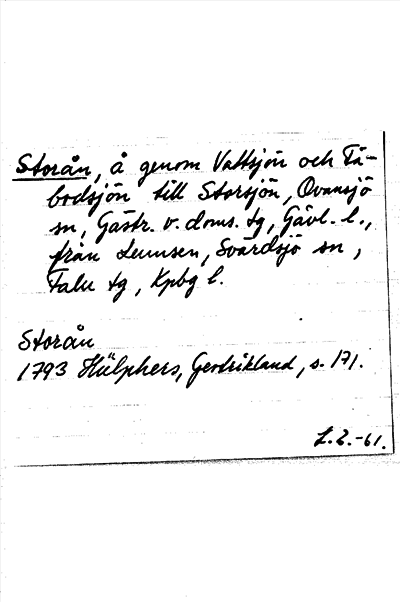 Storån, å genom Valtsjön och Få-
bodsjön till Storsjön, Ovansjö
sn, Gästr. v. doms. tg, Gävl. l.,
från Lumsen, Svärdsjö sn,
Falu tg, Kpbg l.
Storån
1793 Hülphers, Gestrikland, s. 171.
L.Z.-61.